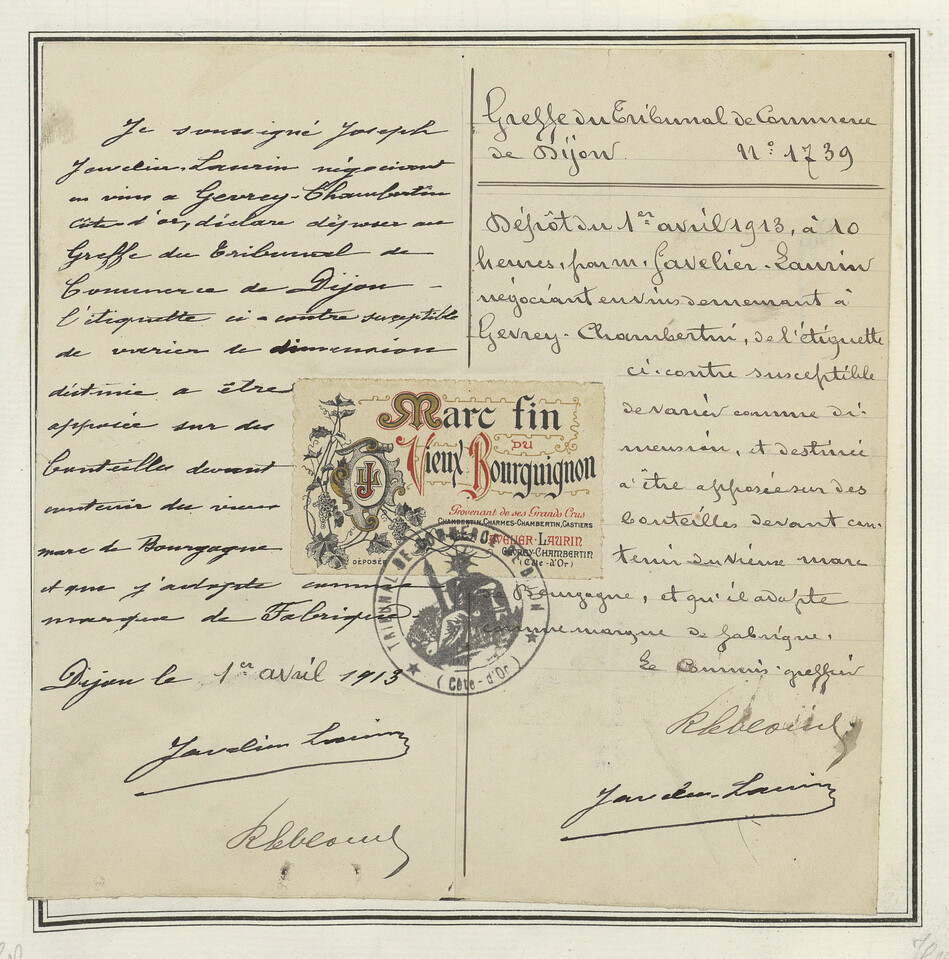 Je soussigné Joseph
Javelier-Laurin négociant
en vins a Gevrey-Chambertin
côte d'or, déclare déposer au
Greffe du Tribunal de
Commerce de Dijon –
l'étiquette ci-contre susceptible
de varier de dimension
distinée a être
apposée sur des
bouteilles devant
contenir du vieux
marc de Bourgogne
et que j'adopte comme
marque de Fabrique.
Dijon le 1er avril 1913
Javelier Laurin
Greffe du Tribunal de Commerce
de Dijon. N° 1739
Dépôt du 1er avril 1913, à 10
heures, par M. Javelier-Laurin
négociant en vins demeurant à
Gevrey-Chambertin, de l'étiquette
ci-contre susceptible
de varier comme di-
mension, et destinée
à être apposée sur des
bouteilles devant con-
tenir du vieux marc
de Bourgogne, et qu'il adopte
comme marque de fabrique.
Le Commis-greffier
Javelier-Laurin
Marc fin
DU
Vieux Bourguignon
Provenant de ses Grands Crus
CHAMBERTIN, CHARMES-CHAMBERTIN, CASTIERS
JAVELIER-LAURIN
GEVREY-CHAMBERTIN
(CÔTE-D'OR)
DÉPOSÉE
JL
TRIBUNAL DE COMMERCE DE DIJON
(Côte-d'Or)